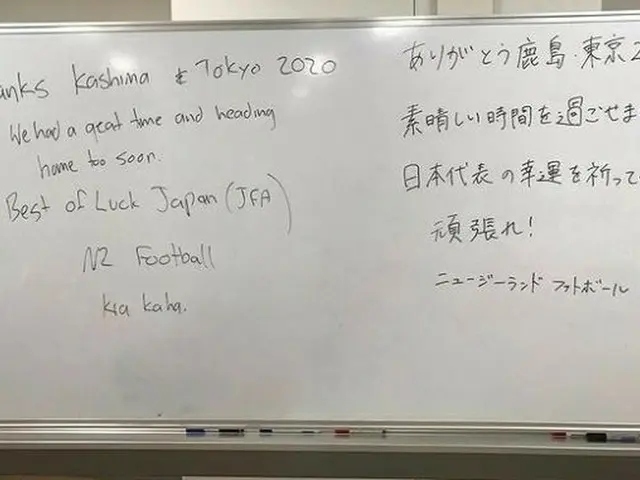 anks Kashima & Tokyo 2020
We had a great time and heading
home too soon.
Best of Luck Japan (JFA)
NZ Football
Kia kaha.
ありがとう鹿島・東京2
素晴しい時間を過ごせま
日本代表の幸運を祈って
頑張れ!
ニュージーランド フットボール